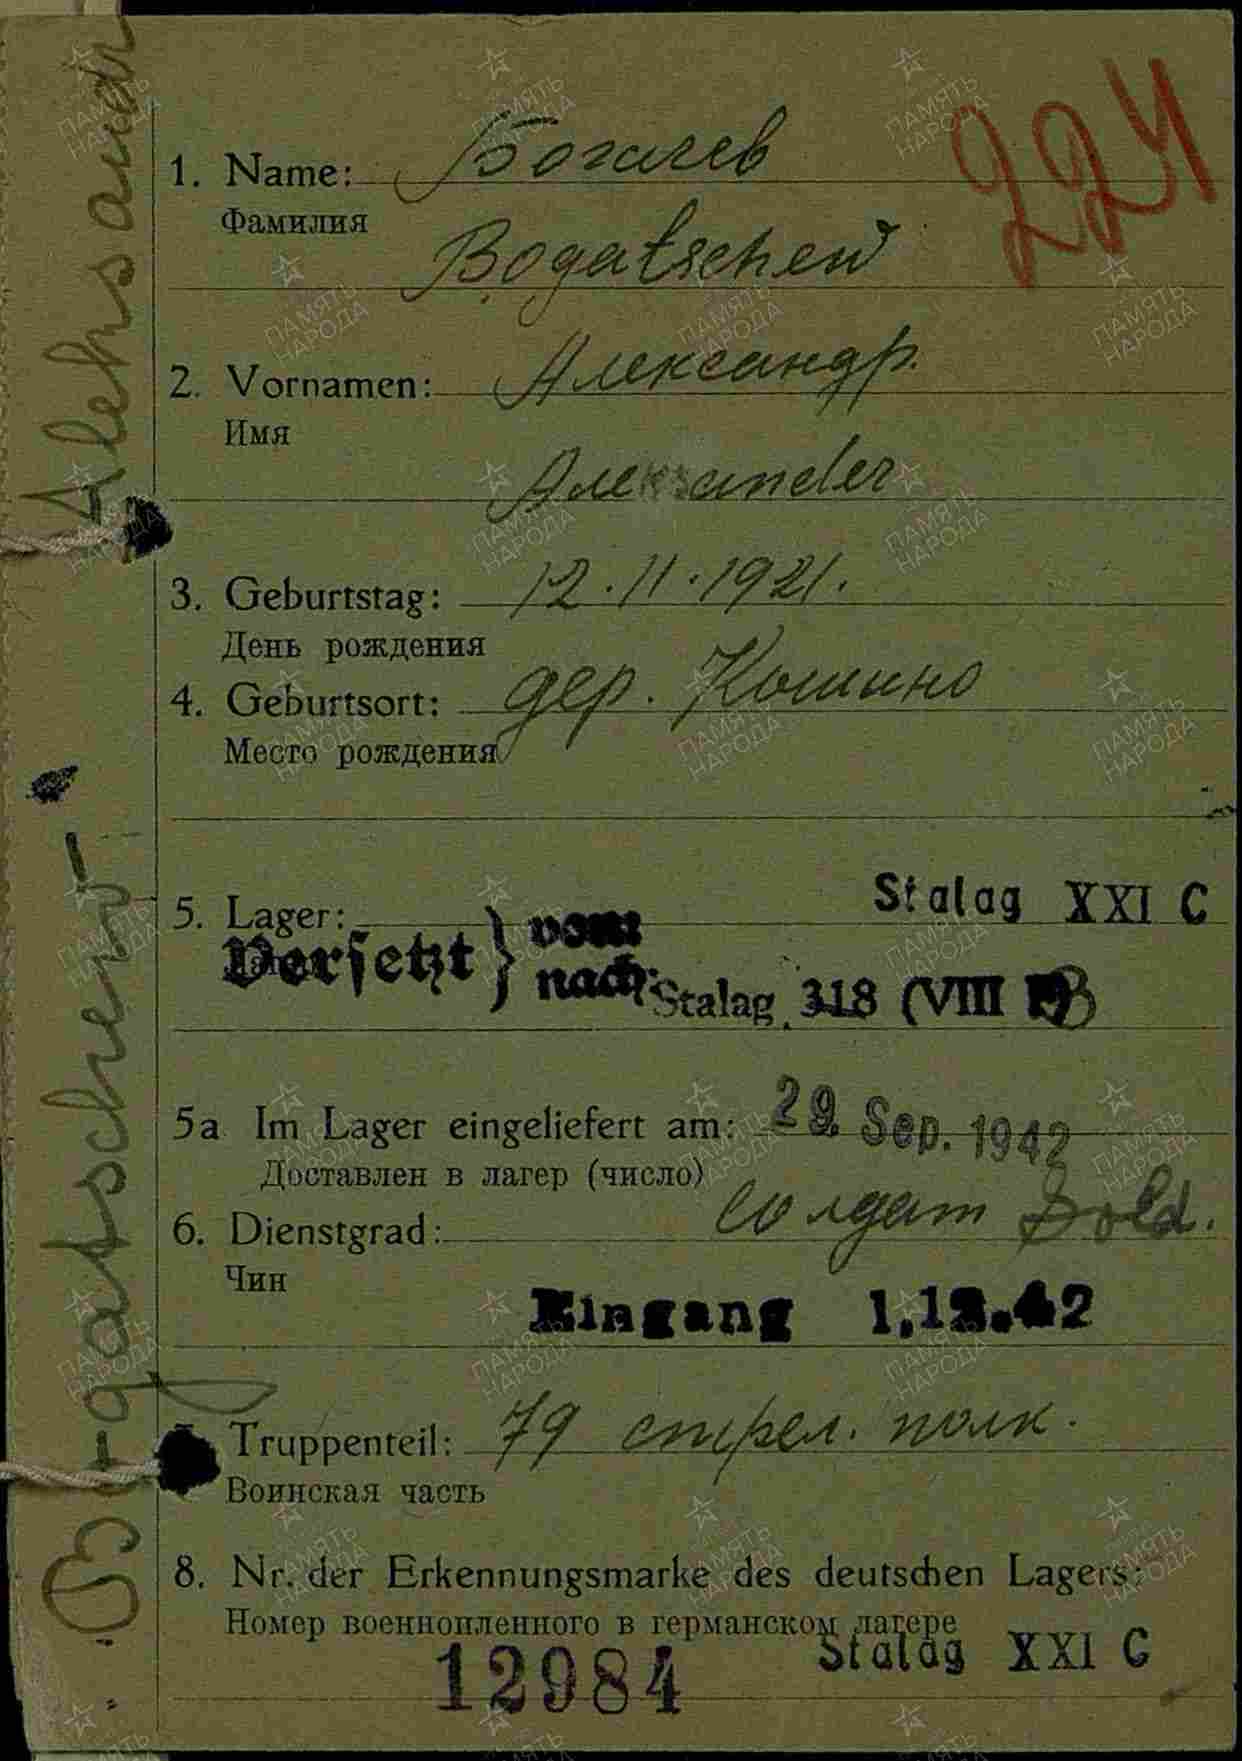 224
1. Name: Богачев
Фамилия
Bogatschew
2. Vornamen: Александр.
Имя
Алексander
3. Geburtstag: 12.11.1921.
День рождения
4. Geburtsort: дер. Кошино
Место рождения
5. Lager: Stalag XXI C
Versetzt } vom:
nach: Stalag 318 (VIII F) B
5a Im Lager eingeliefert am: 29. Sep. 1942
Доставлен в лагер (число)
6. Dienstgrad: солдат Sold.
Чин
Eingang 1.12.42
7. Truppenteil: 79 стрел. полк.
Воинская часть
8. Nr. der Erkennungsmarke des deutschen Lagers:
Номер военнопленного в германском лагере
12984 Stalag XXI C
Bogatschew Alehsandr
ПАМЯТЬ НАРОДА